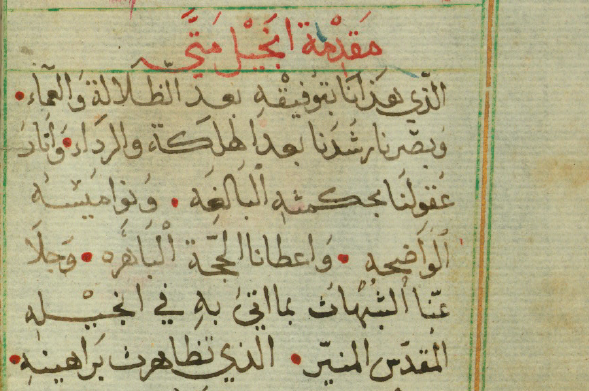 مقدمة انجيل متّي
الّذي هَدَانَا بتوفيقْهِ بعد الظلالة وَالعَمَاء •
وبصّرنا رشدنا بعد الهلكة والرداء • وَانَارَ
عقولنَا بحكمته البالغه • وَنواميسه
الوَاضحه • وَاعطانا الحجّة الْبَاهره • وَجلَا
عنّا الشبُهَات بما اتيَ بهِ في انجيله
المقدس المنيّر • الذي تظاهرت بَراهينه •